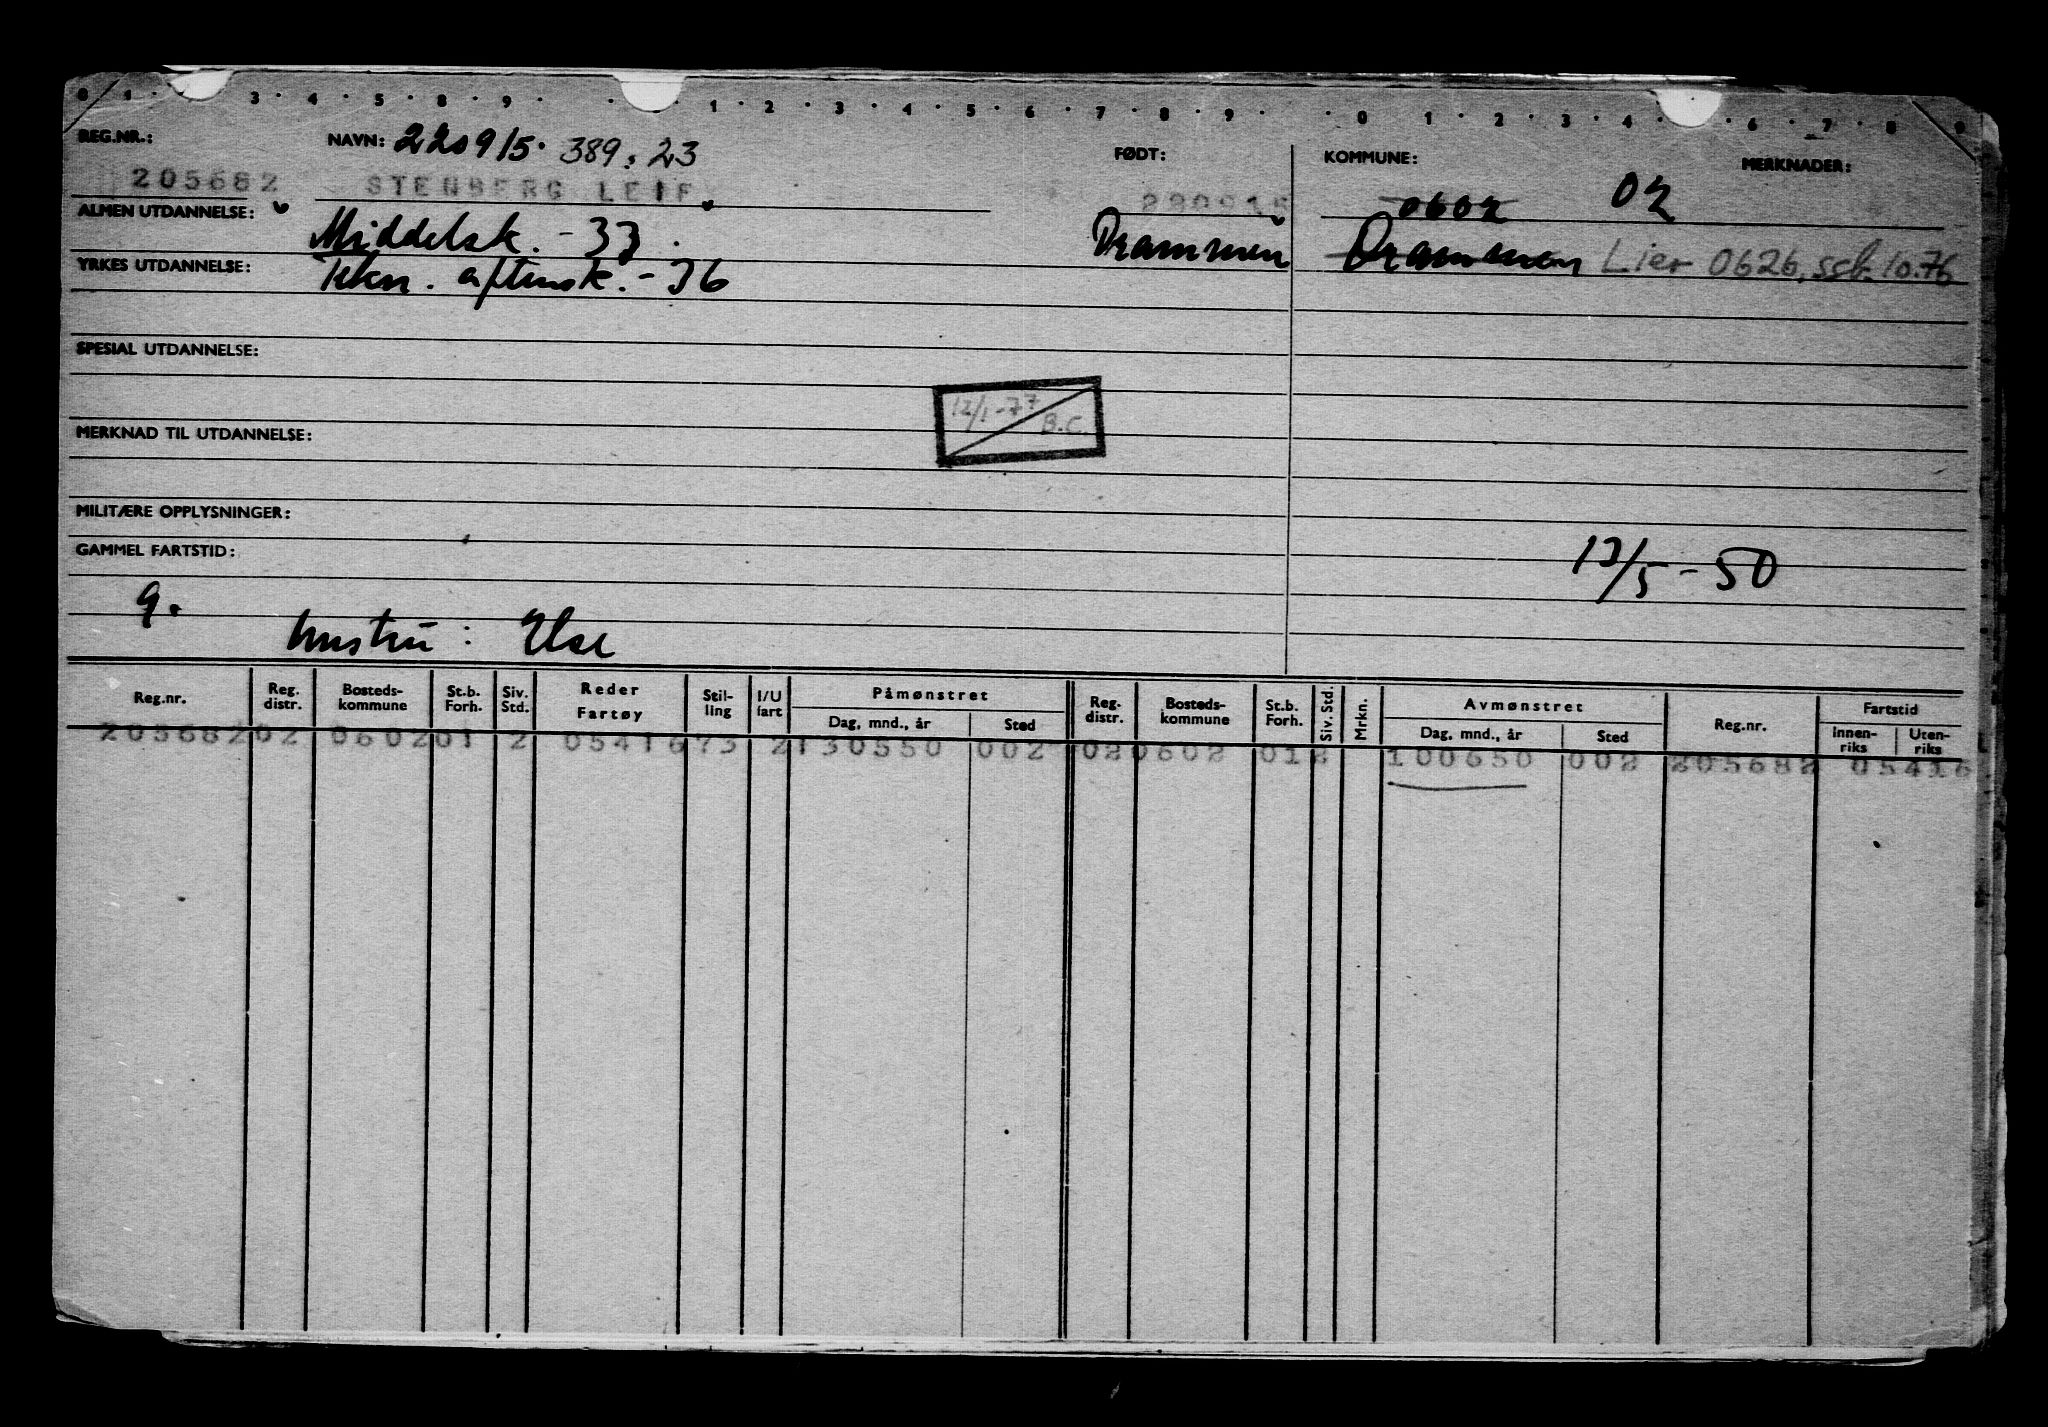 0 1 · 3 · 4 · 5 · 8 · 9 · · 1 · 2 · 3 · 4 · 5 · 6 · 7 · 8 · 9 · · 0 · 1 · 2 · 3 · 4 · 6 · 7 · 8 · 9
REG.NR.: NAVN: 220915. 389.23 FØDT: KOMMUNE: MERKNADER:
205682 STENBERG LEIF 0602 02
ALMEN UTDANNELSE: Middelsk. - 33. Drammen Drammen Lier 0626, ssb. 10.76
YRKES UTDANNELSE: Tekn. aftensk. - 36
SPESIAL UTDANNELSE:
12/1-77 B.C.
MERKNAD TIL UTDANNELSE:
MILITÆRE OPPLYSNINGER:
GAMMEL FARTSTID: 12/5 - 50
g.
hustru : Else
Reg.nr. Reg. distr. Bosteds-kommune St.b. Forh. Siv. Std. Reder Fartøy Stil-ling I/U fart Påmønstret Reg. distr. Bosteds-kommune St.b. Forh. Siv. Std. Mrkn. Avmønstret Reg.nr. Fartstid
Dag, mnd., år Sted Dag, mnd., år Sted Innen-riks Uten-riks
205682 02 0602 01 2 05416 73 2 130550 002 02 0602 01 2 100650 002 205682 05416